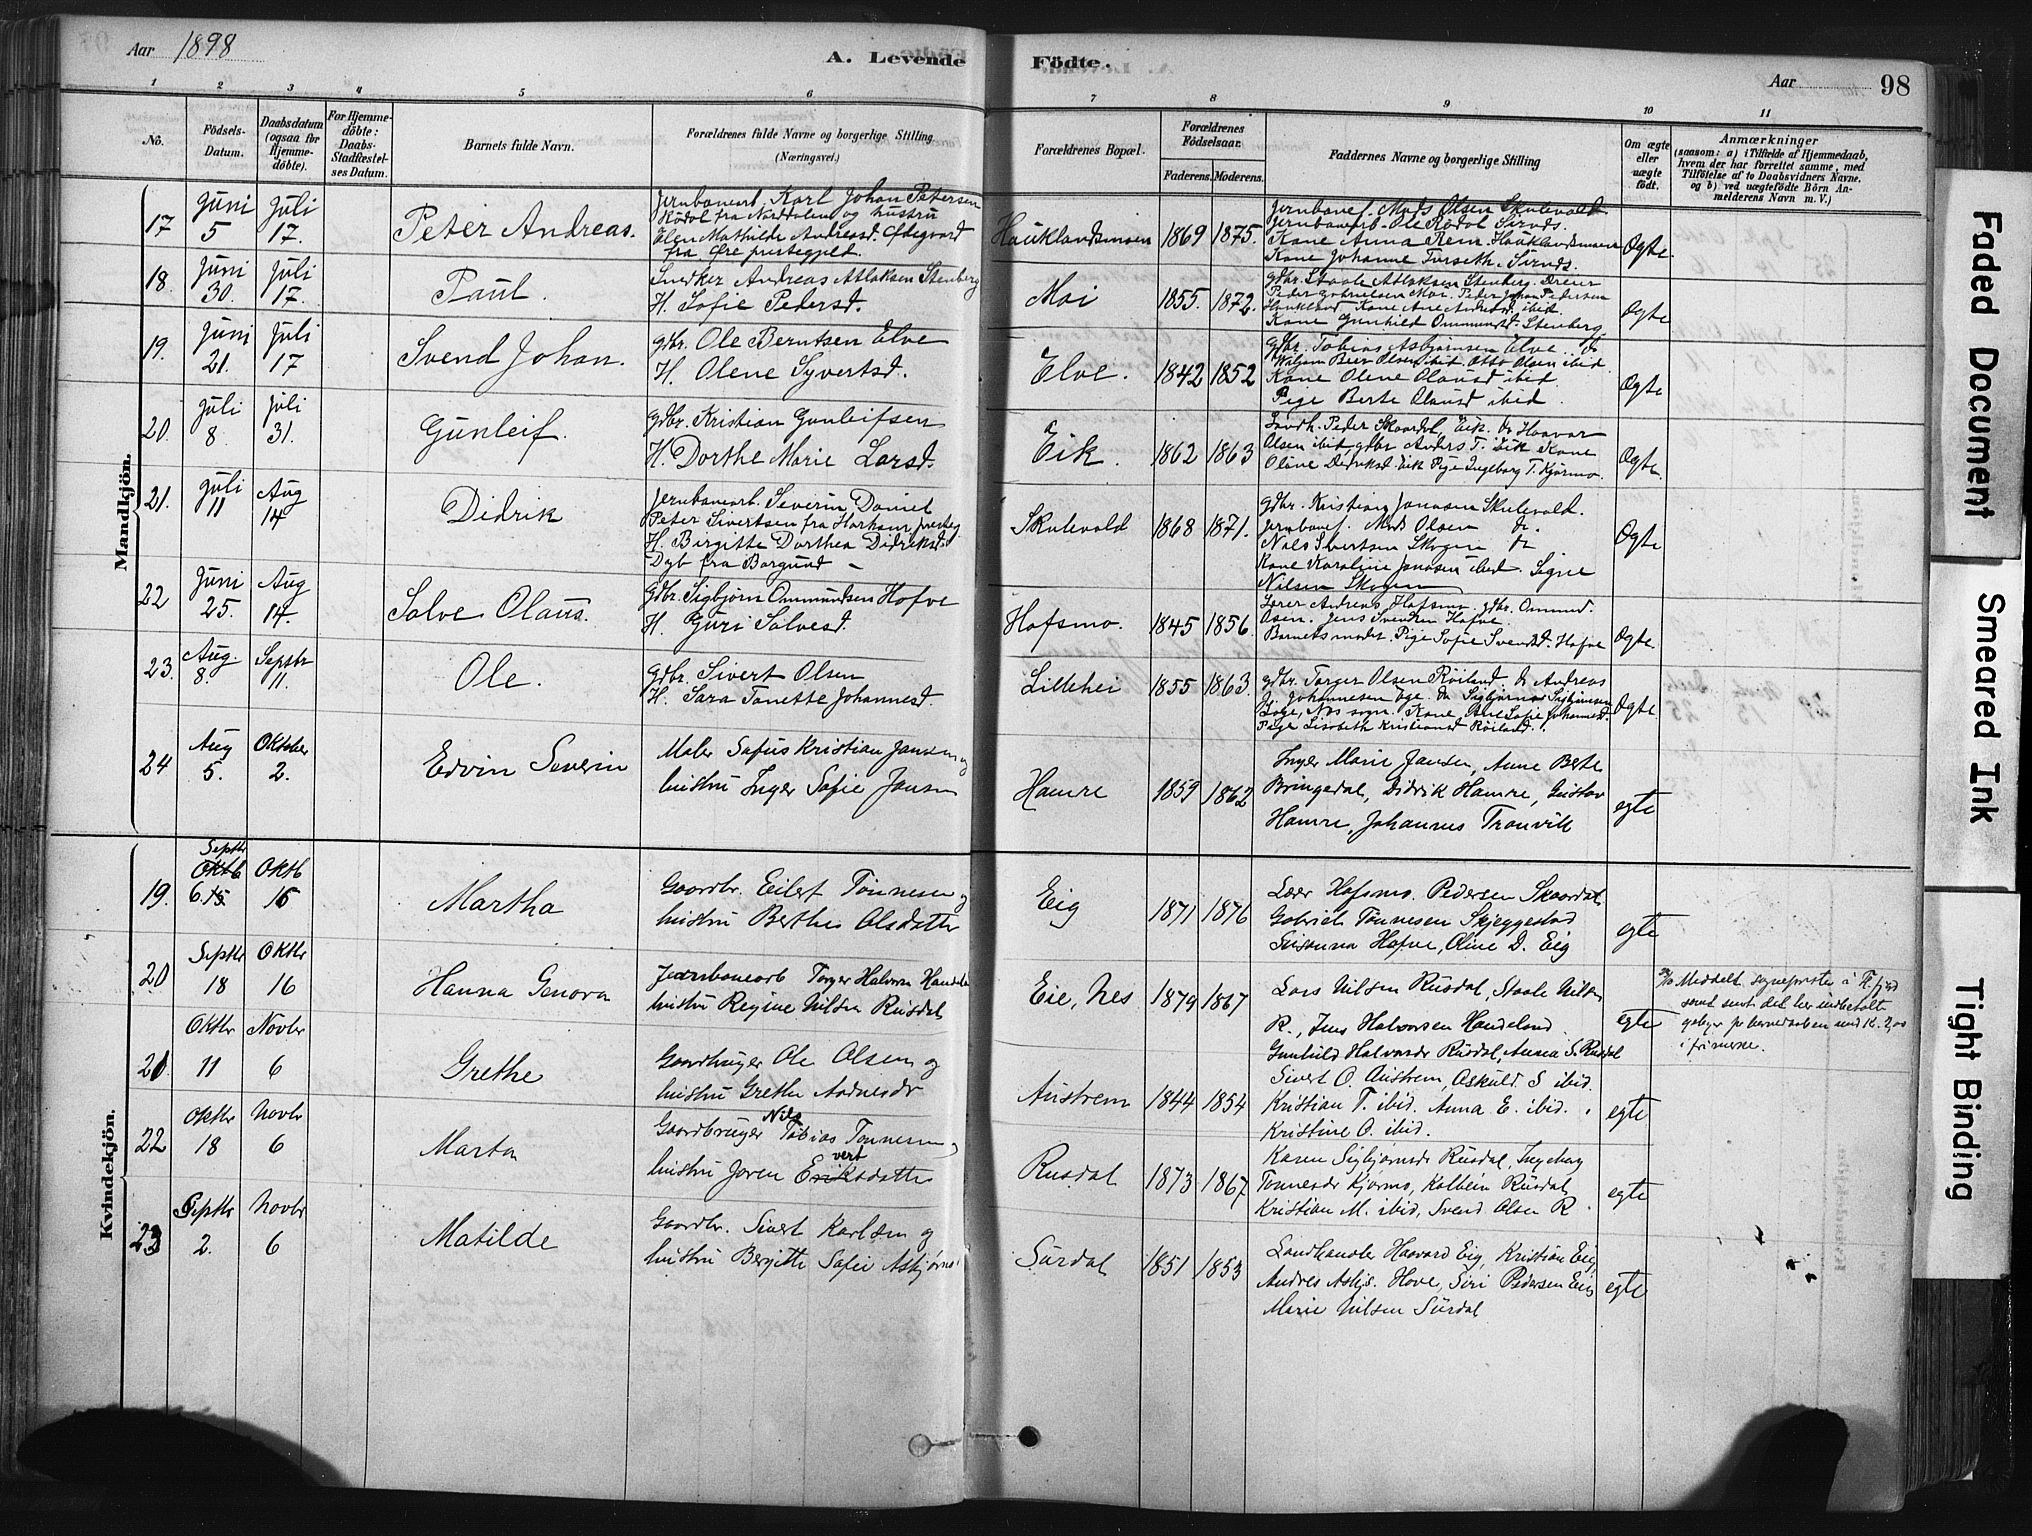 Aar 1898
A. Levende Födte.
Aar 98
1 2 3 4 5 6 7 8 9 10 11
No.
Födsels-Datum.
Daabsdatum (ogsaa for Hjemme-döbte).
For Hjemme-döbte: Daabs-Stadfæstel-ses Datum.
Barnets fulde Navn.
Forældrenes fulde Navne og borgerlige Stilling (Næringsvei.)
Forældrenes Bopæl.
Forældrenes Födselsaar.
Faderens. Moderens.
Faddernes Navne og borgerlige Stilling
Om ægte eller uægte født.
Anmærkninger
(saasom: a) i Tilfælde af Hjemmedaab,
hvem der har forrettet samme, med
Tilföielse af to Daabsvidners Navne.
og b) ved uægtefödte Börn An-
melderens Navn m. V.)
Mandkjön.
17 Juni 5 Juli 17. Peter Andreas.
Jernbanearb. Karl Johan Petersen
Rödal fra Norddalen og hustru
Elen Mathilde Andreasd. Ödegaard
fra Öre prestegjeld.
Hauklandsmoen 1869 1875.
Jernbanef. Mads Olsen Skulevold
Jernbanearb. Ole Rödal Sirnes.
Kone Anna Rem Hauklandsmoen
Kone Johanne Furseth Sirnes.
Ægte.
18. Juni 30. Juli 17. Paul.
Snedker Andreas Atlaksen Stenberg
H. Sofie Pedersd.
Moi 1855. 1872.
gdbr. Staale Atlaksen Stenberg. Dreier
Peder Gabrielsen Moi. Peder Johan Pedersen
Haukland Kone Ane Andreasd. ibid.
Kone Gunhild Ommundsd. Stenberg
Ægte
19. Juni 21. Juli 17 Svend Johan.
gdbr. Ole Berntsen Elve
H. Olene Syvertsd.
Elve. 1842 1852
gdbr. Tobias Asbjørnsen Elve. do
Olsen ibid Otto Olsen ibid.
Kone Olene Olausd ibid.
Pige Berte Olausd ibid.
Ægte
20. Juli 8. Juli 31. Gunleif.
gdbr. Kristian Gunleifsen
H. Dorthe Marie Larsd.
Eik. 1862 1863
Landh. Peder Skaardal, Eik. do Haavar
Olsen ibid gdbr Anders T. Eik Kone
Oline Didriksd. Eik Pige Ingeborg T. Kjörmo.
Ægte.
21. Juli 11 Aug 14 Didrik
Jernbanearb. Severin Daniel
Peter Sivertsen fra Harham presteg
H. Birgitte Dorthea Didriksd.
Dyb fra Borgund
Skulevold 1868 1871.
gdbr. Kristian Jonassen Skulevold.
Jernbanef. Mads Olsen do.
Nils Sivertsen Skogen do
Kone Karoline Jonasen ibid. Signe
Nilsen Skogen
Ægte
22 Juni 25. Aug 14. Salve Olaus.
Gdbr. Sigbjørn Ommundsen Hofve
H. Guri Salvesd.
Hofsmo. 1845 1856.
Lærer Andreas Hofsmo, gdbr. Ommund
Osen. Jens Svendsen Hofve.
Barnets moder. Pige Sofie Svendsd. Hofve
Ægte
23. Aug. 8. Septbr 11. Ole.
gdbr. Sivert Olsen
H. Sara Tonette Johannesd.
Lillehei 1855 1863.
gdbr. Torger Olsen Röiland. do Andreas
Johannesen Ege do Sigbjørn Sigbjørnsen
Nes sogn. Kone Ane Sofie Johannesd.
Pige Lisabeth Kristiansd Röiland.
Ægte
24 Aug 5. Oktober 2. Edvin Severin
Maler Sofus Kristian Jansen og
hustru Inger Sofie Jansen
Hamre 1859 1862
Inger Marie Jansen, Anne Berte
Bringedal, Didrik Hamre, Gustav
Hamre, Johannes Tronvik
egte
Kvindekjön.
19. Septbr Oktb 6. 15 Oktb 16 Martha
Gaardbr. Eilert Tönnesen og
hustru Berthe Olsdatter
Eig 1871 1876
Lærer Hofsmo. Pedersen Skaardal
Gabriel Tönnesen Skjeggestad
Susanna Hofve, Oline D. Eig
egte
20 Septbr 18 Oktbr 16 Hanna Genora
Jernbanearb Torger Halvorsen Handeland
hustru Regine Nilsen Rusdal
Eie, Nes 1879 1867
Lars Nilsen Rusdal, Staale Nilsen
R., Jens Halvorsen Handeland.
Gunhild Halvorsdr Rusdal, Anna S. Rusdal
egte
Meddelt sogneprest i Fl.fjord
samt sendt det her indbetalte
gebyr for barnedaaben med K. 2,00
i frimerke.
21 Oktbr 11 Novbr 6 Grethe
Gaardbruger Ole Olsen og
hustru Grethe Aadnesdr
Austrem 1844 1854
Sivert O. Austrem, Askuld. S ibid.
Kristian T. ibid. Anna E. ibid.
Kristine O. ibid.
egte
22 Oktbr 18 Novbr 6 Marta
Gaardbruger Nils Tobias Tönnesen og
hustru Joren Eriksdatter vert
Rusdal 1873 1867
Karen Sigbjørnsdr Rusdal, Ingeborg
Tönnesdr Kjørmo, Kolbein Rusdal
Kristian M. ibid, Svend Olsen R.
egte
23 Septbr 2. Novbr 6 Matilde
Gaardbr. Sivert Karlsen og
hustru Bergitte Sofie Asbjørns
Surdal 1851 1853
Landhandler Haavard Eig, Kristian Eig,
Andres Asbjs. Hove, Siri Pedersen Eig
Marie Nilsen Surdal
egte
Faded Document
Smeared Ink
Tight Binding